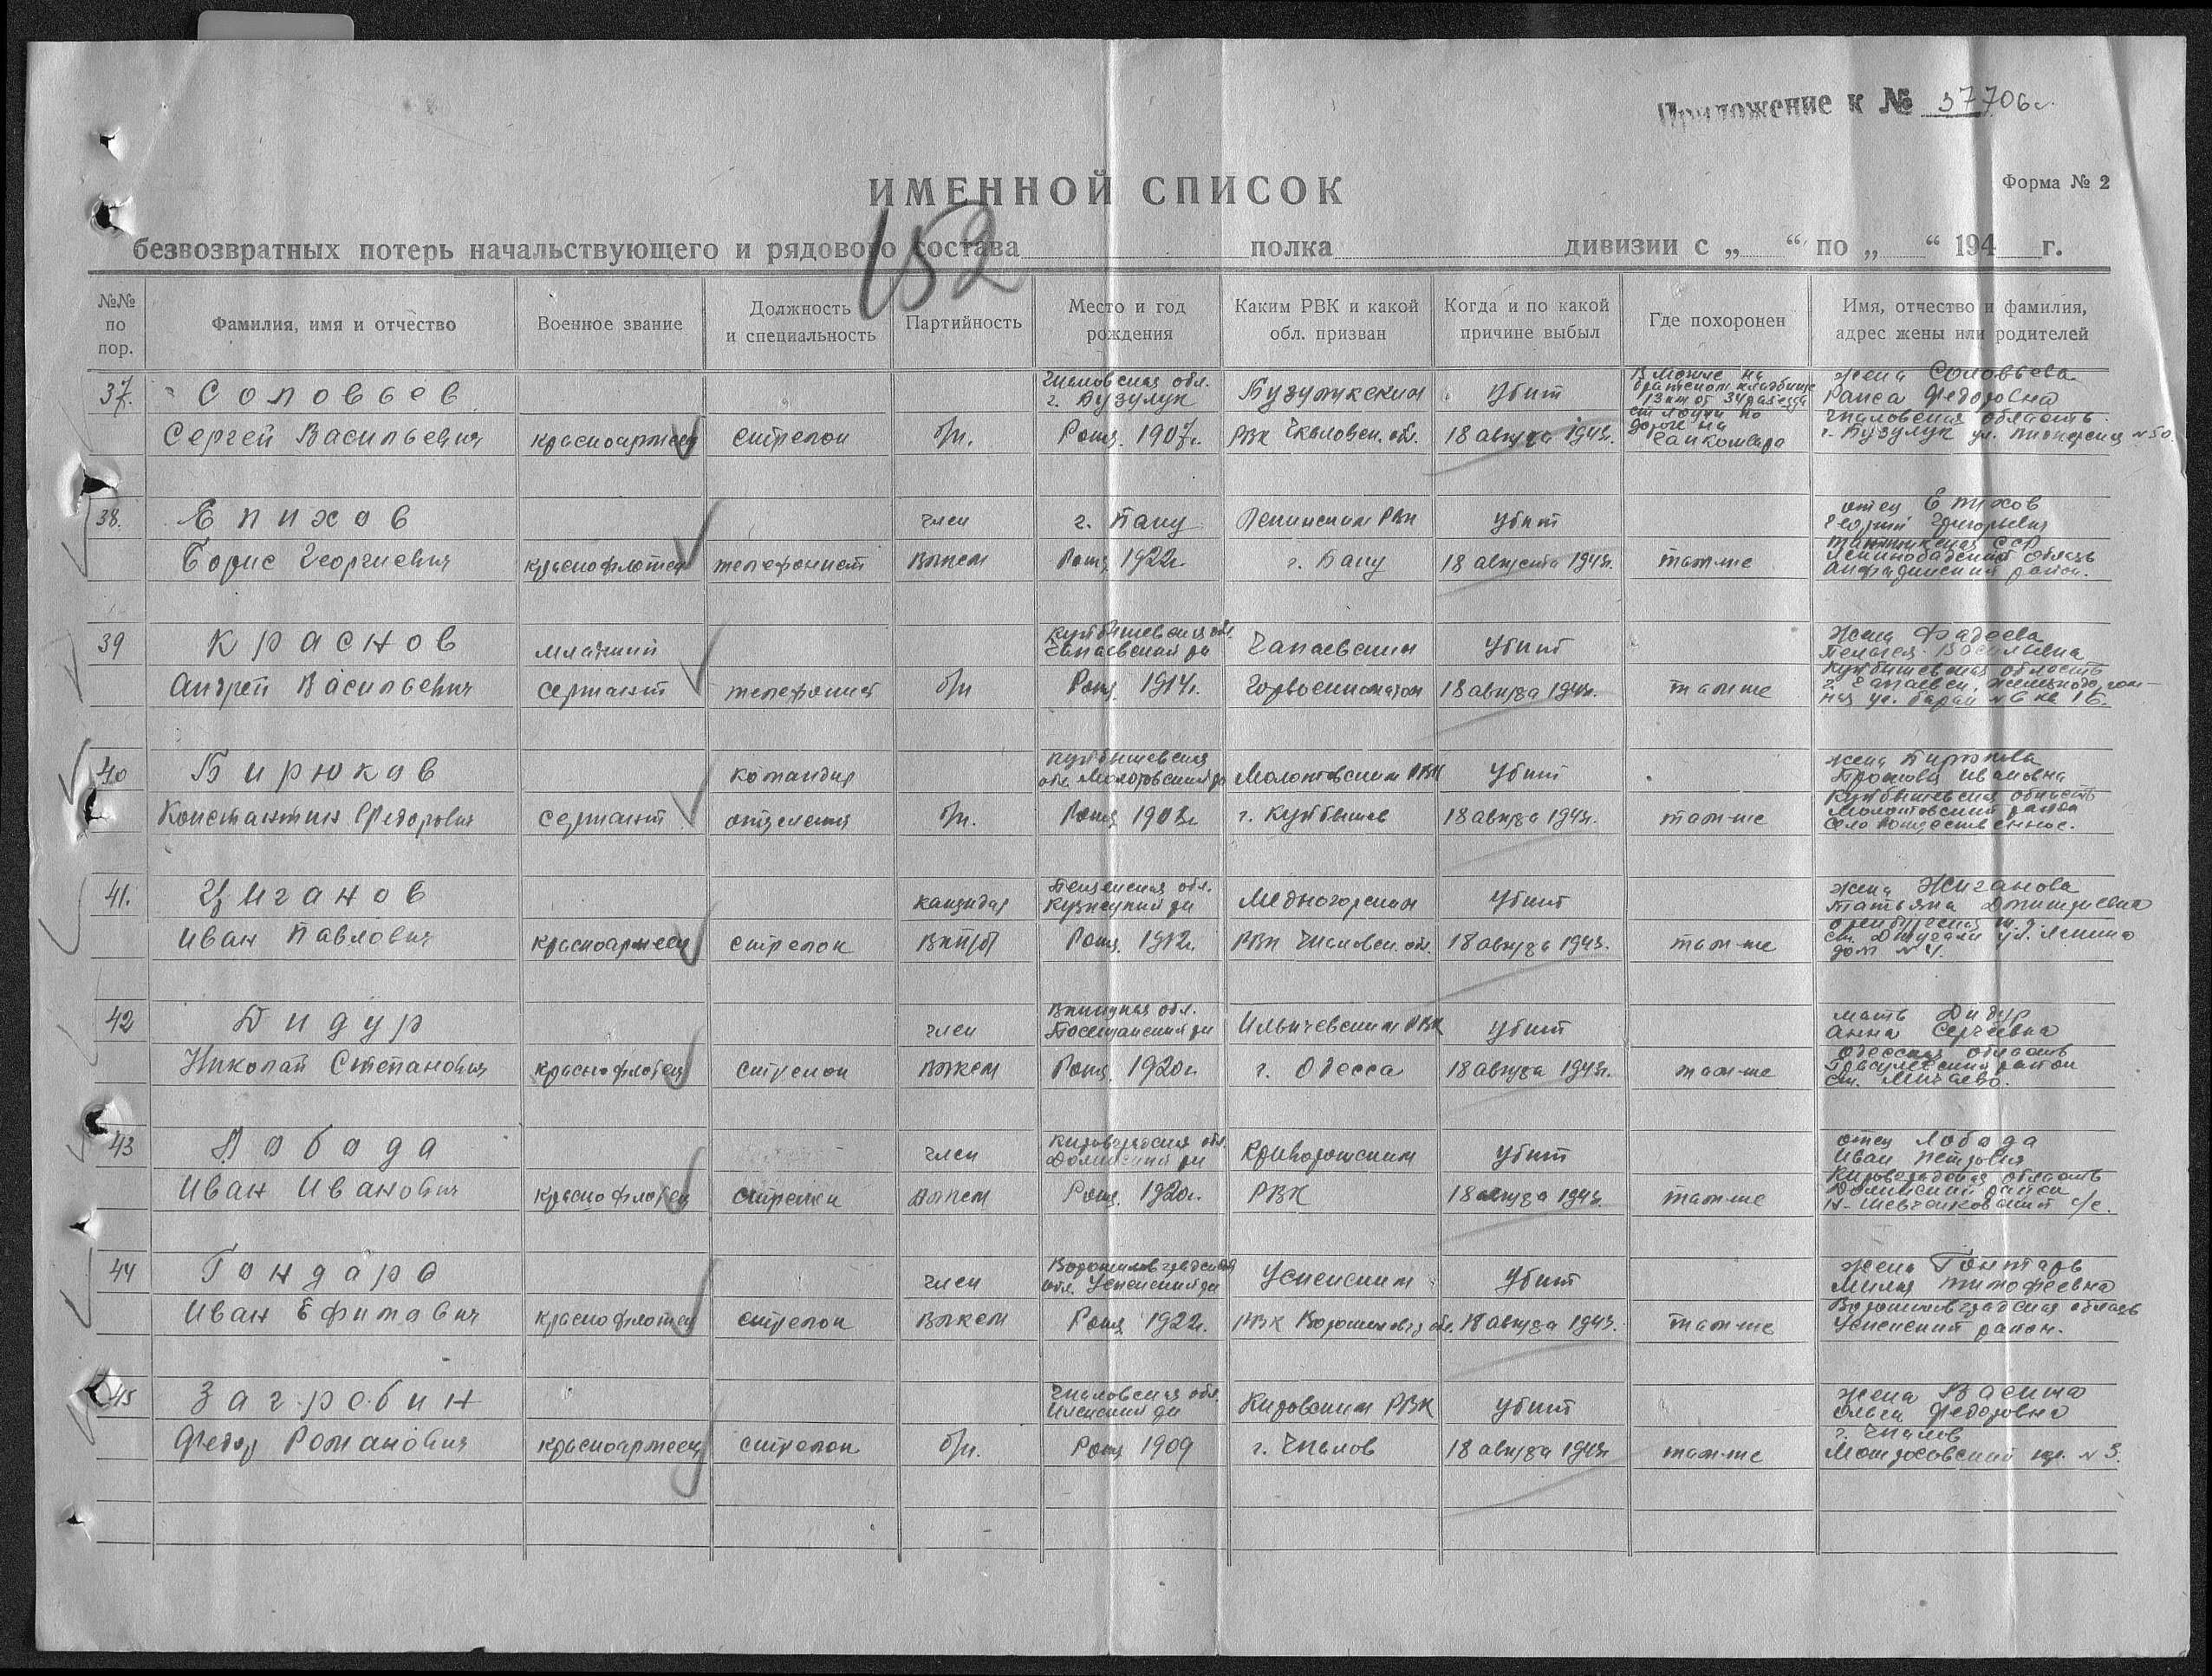 Приложение к № 37706с.
ИМЕННОЙ СПИСОК
Форма № 2
152
безвозвратных потерь начальствующего и рядового состава полка дивизии с „ “ по „ “ 194 г.
№№ по пор.
Фамилия, имя и отчество
Военное звание
Должность и специальность
Партийность
Место и год рождения
Каким РВК и какой обл. призван
Когда и по какой причине выбыл
Где похоронен
Имя, отчество и фамилия, адрес жены или родителей
37.
Соловьев
Сергей Васильевич
красноармеец
стрелок
б/п.
Чкаловская обл.
г. Бузулук
Рожд. 1907г.
Бузулукским
РВК Чкаловск. обл.
Убит
18 августа 1943г.
братском кладбище
дороге на
жена Соловьева
Раиса Федоровна
Чкаловская область
г. Бузулук ул. Пионерская № 50
38.
Епихов
Борис Георгиевич
краснофлотец
телефонист
член
ВЛКСМ
г. Баку
Рожд. 1922г.
Ленинским РВК
г. Баку
убит
18 августа 1943г.
там-же
отец Епихов
Георгий Григорьевич
Таджикская ССР
Ленинабадская область
район.
39
Краснов
Андрей Васильевич
младший
сержант
телефонист
б/п
Куйбышевская обл.
Чапаевский р-н
Рожд. 1914г.
Чапаевским
Горвоенкоматом
Убит
18 августа 1943г.
там-же
Жена Фадеева
Пелагея Васильевна
Куйбышевская область
г. Чапаевск, Железнодорож-
ная ул. барак № 6 кв 16.
40
Бирюков
Константин Федорович
сержант
командир
отделения
б/п.
Куйбышевская
обл. Молотовский р-н
Рожд. 1902г.
Молотовским РВК
г. Куйбышев
убит
18 августа 1943г.
там-же
жена Бирюкова
Ивановна
Куйбышевская область
Молотовский район
село Рождественное.
41.
Циганов
Иван Павлович
красноармеец
стрелок
кандидат
ВКП/б/
Пензенская обл.
Кузнецкий р-н
Рожд. 1912г.
Медногорским
РВК Чкаловск. обл.
убит
18 августа 1943г.
там-же
жена Жиганова
Татьяна Дмитриевна
Оренбургская ж.д.
ст. ул. Ленина
дом № 4.
42
Дидур
Николай Степанович
краснофлотец
стрелок
член
ВЛКСМ
Винницкая обл.
Песчанский р-н
Рожд. 1920г.
Ильичевским РВК
г. Одесса
убит
18 августа 1943г.
там-же
мать Дидур
Анна Сергеевна
Одесская область
район
ст.
43
Лобода
Иван Иванович
краснофлотец
стрелок
член
ВЛКСМ
Кировоградская обл.
Долинский р-н
Рожд. 1920г.
Криворожским
РВК
убит
18 августа 1943г.
там-же
отец Лобода
Иван Петрович
Кировоградская область
Долинский район
Н-Шевченковский с/с.
44
Гондарь
Иван Ефимович
краснофлотец
стрелок
член
ВЛКСМ
Ворошиловградская
обл. Успенский р-н
Рожд. 1922г.
Успенским
РВК Ворошиловгр обл.
Убит
18 августа 1943г.
там-же
жена Гонтарь
Мария Тимофеевна
Ворошиловградская область
Успенский район.
45
Загребин
Федор Романович
красноармеец
стрелок
б/п.
Чкаловская обл.
Илекский р-н
Рожд 1909
Кировским РВК
г. Чкалов
убит
18 августа 1943г
там-же
жена
Ольга Федоровна
г. Чкалов
Матросовский пер. № 3.